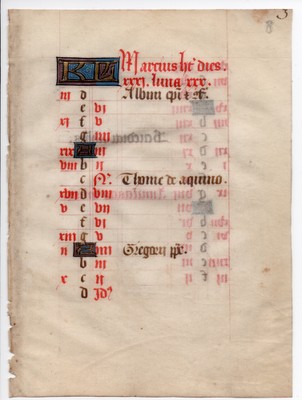 8
KL Marcius ht dies.
xxxj. luna xxx.
iij d Albini epi & cf.
e vj
xj f v
g iiij
xix A iij
viij b ij
c N. Thome de aquino.
xvj d viij
v e vij
f vj
xiij g v
ij A iiij Gregorii pp.
b iij
x c ij
d Jd'